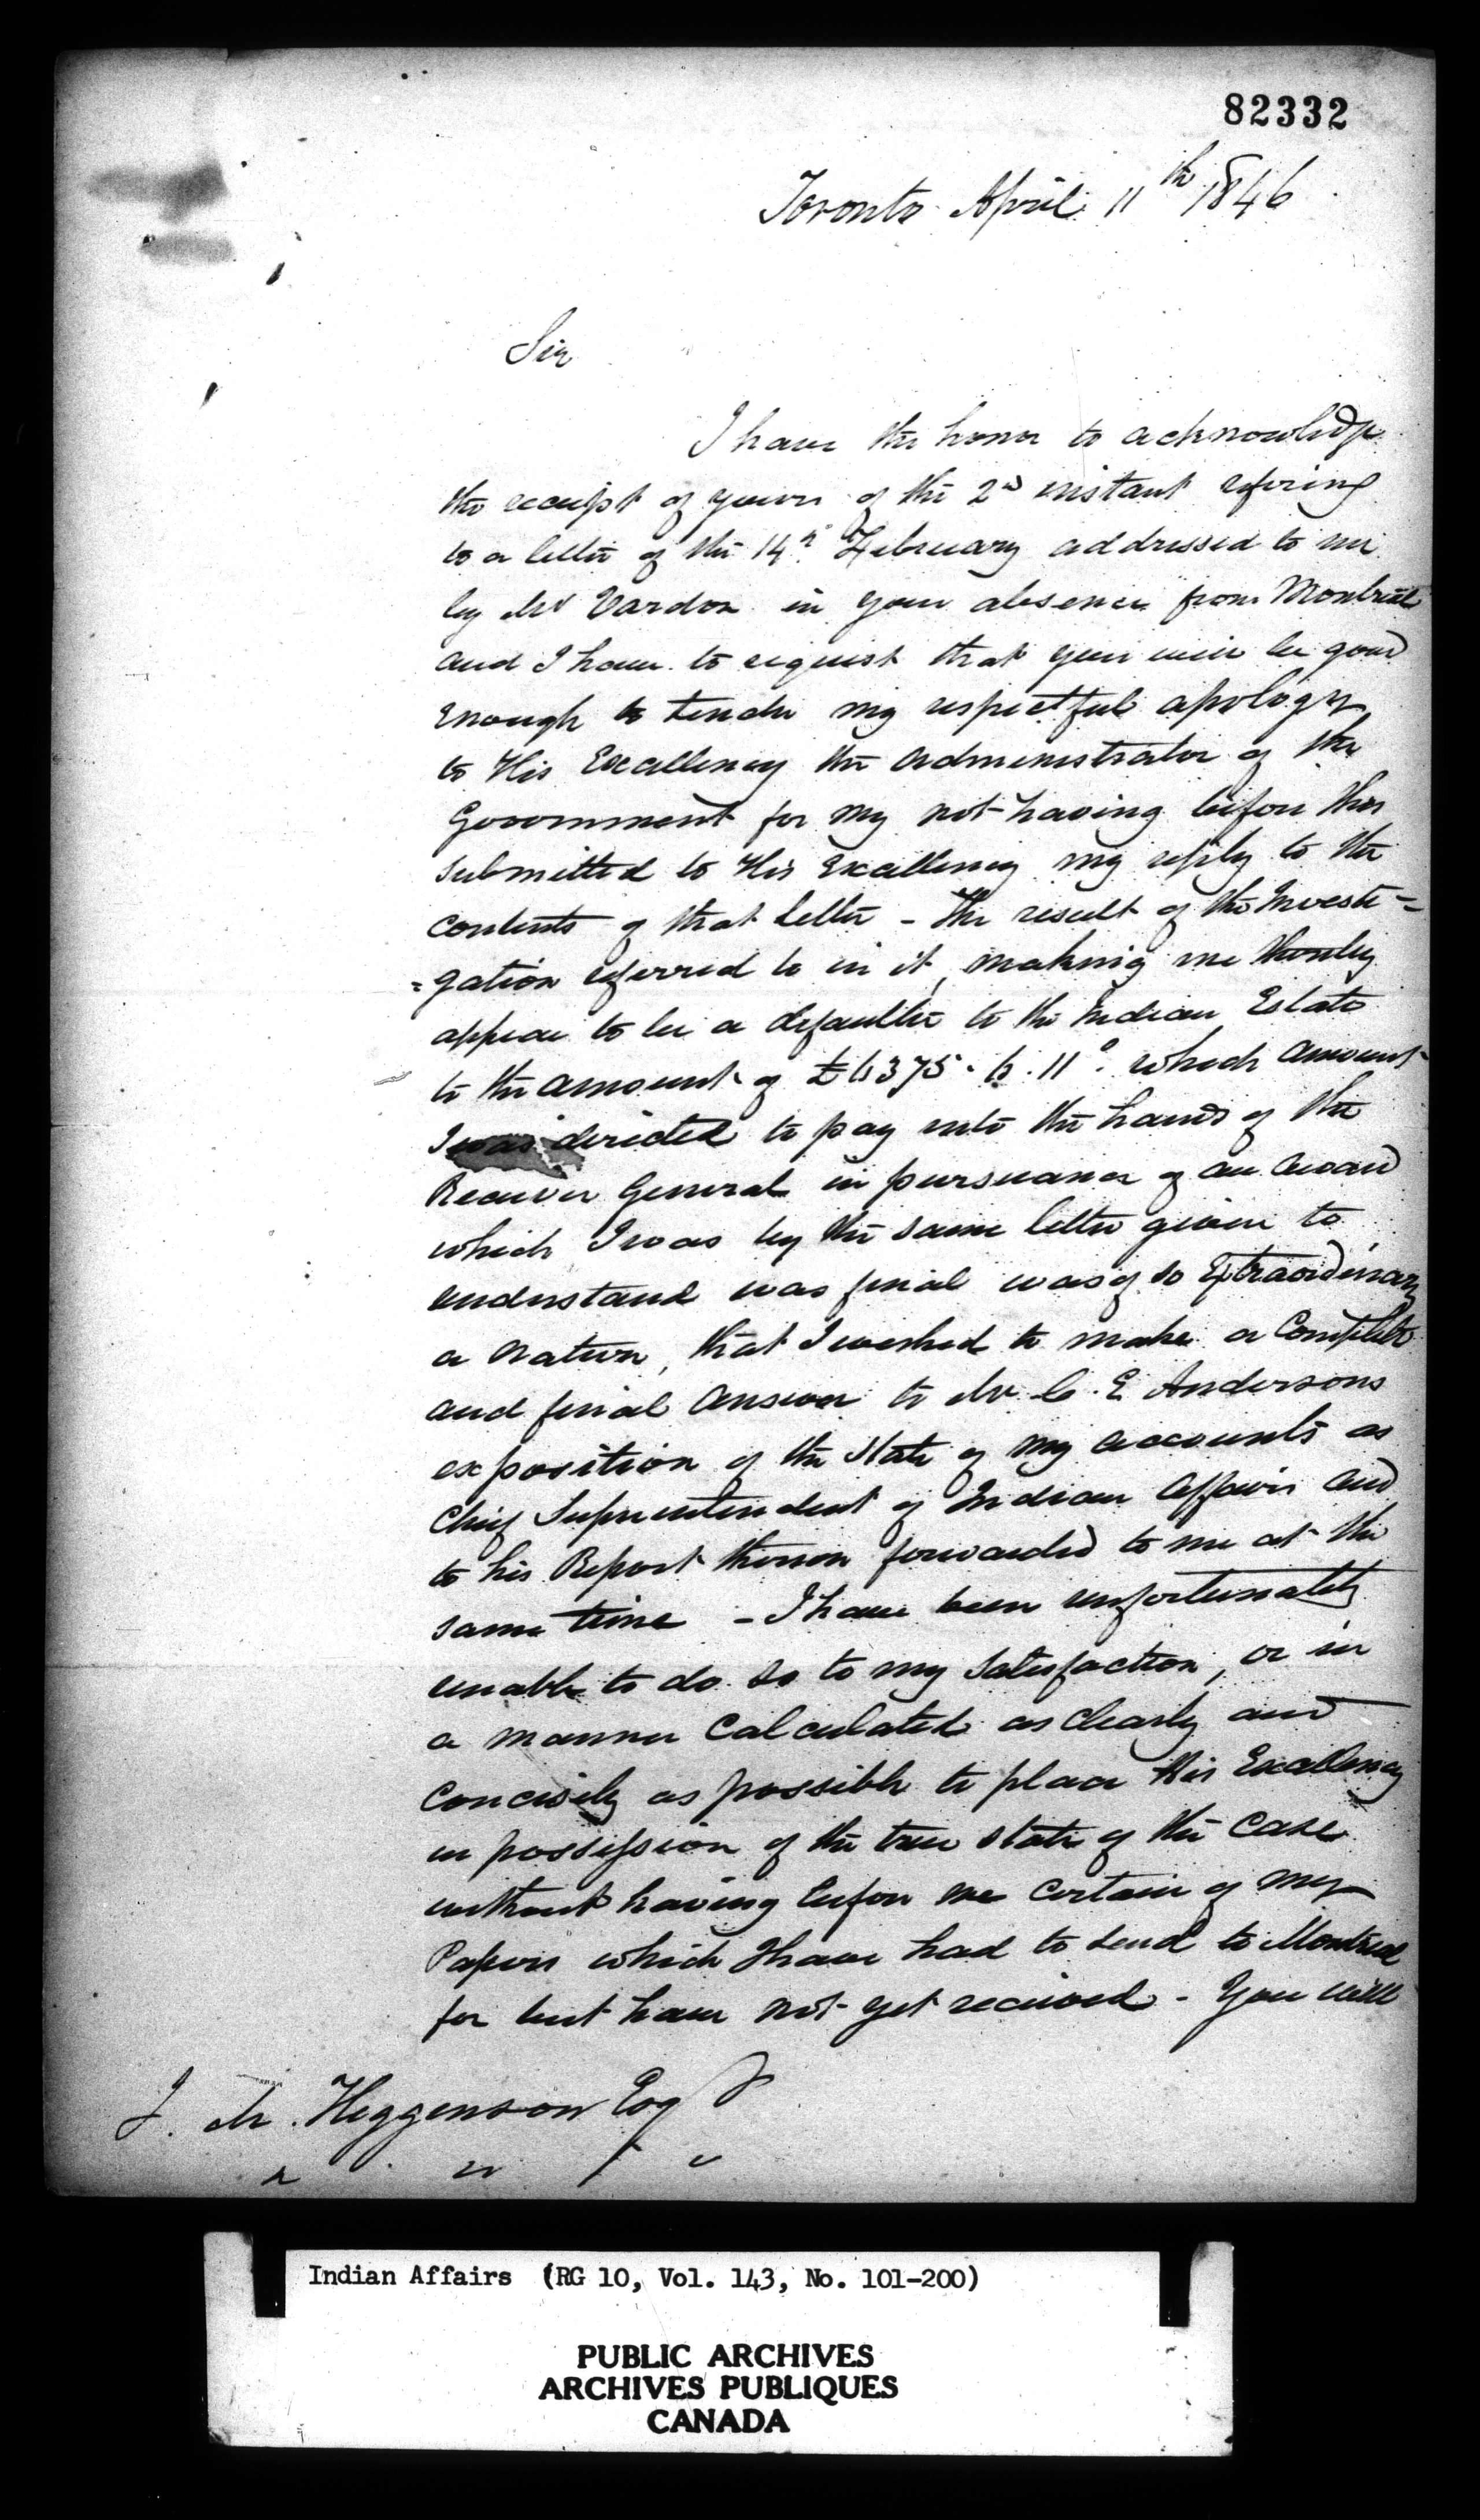 82332
Toronto April 11th 1846
Sir
I have the honor to acknowledge
the receipt of yours of the 2d instant refering
to a letter of the 14th February addressed to me
by Mr Vardon in your absence from Montreal
and I have to request that you will be good
enough to tender my respectful apology
to His Excellency the Administrator of the
Government for my not having before this
submitted to His Excellency my reply to the
contents of that letter - The result of the Investi=
=gation referred to in it, making me thereby
appear to be a defaulter to the Indian Estate
to the amount of £6375.6.11. which amount
I was directed to pay into the hands of the
Receiver General in pursuance of an Award
which I was by the same letter given to
understand was final was of so Extraordinary
a nature, that I wished to make a Complete
and final Answer to Mr C. E Andersons
exposition of the State of my accounts as
Chief Superintendent of Indian Affairs and
to his Report thereon forwarded to me at the
same time - I have been unfortunately
unable to do so to my satisfaction, or in
a manner Calculated as clearly and
concisely as possible to place His Excellency
in possession of the true state of the Case
without having before me certain of my
Papers which I have had to send to Montreal
for but have not yet received - You will
J. M. Higgenson Esqr
Indian Affairs (RG 10, Vol. 143, No. 101-200)
PUBLIC ARCHIVES
ARCHIVES PUBLIQUES
CANADA